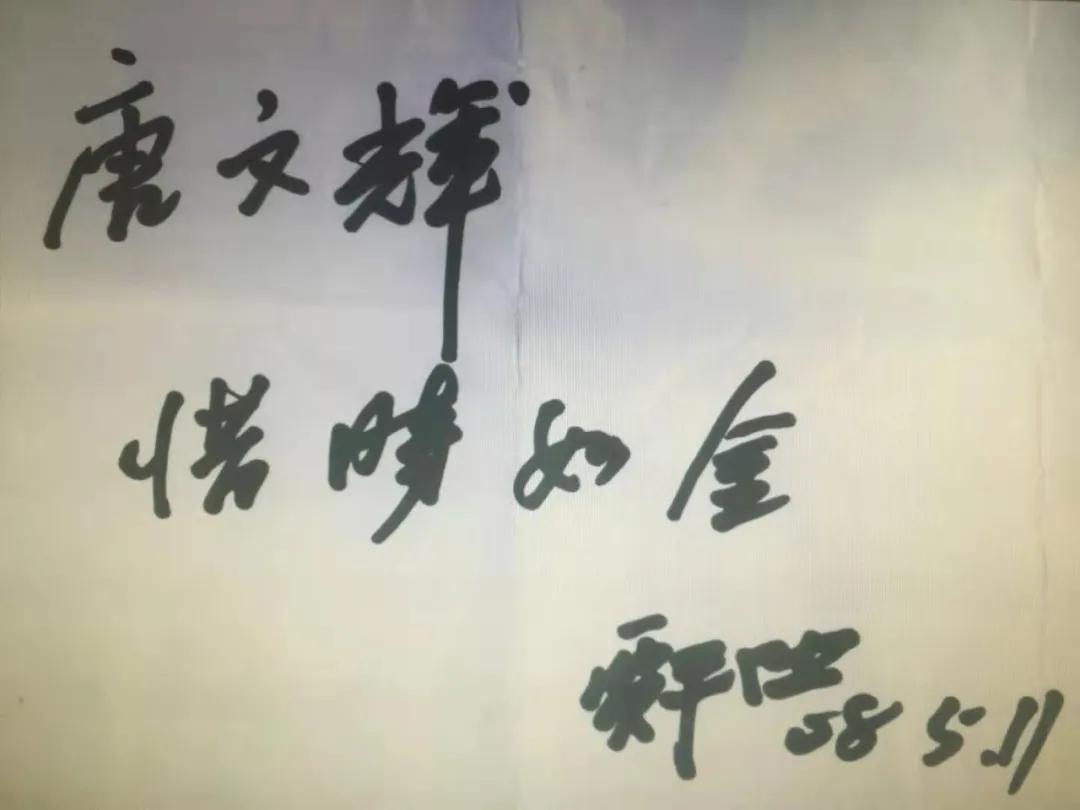 唐文辉
惜时如金
58 5.11